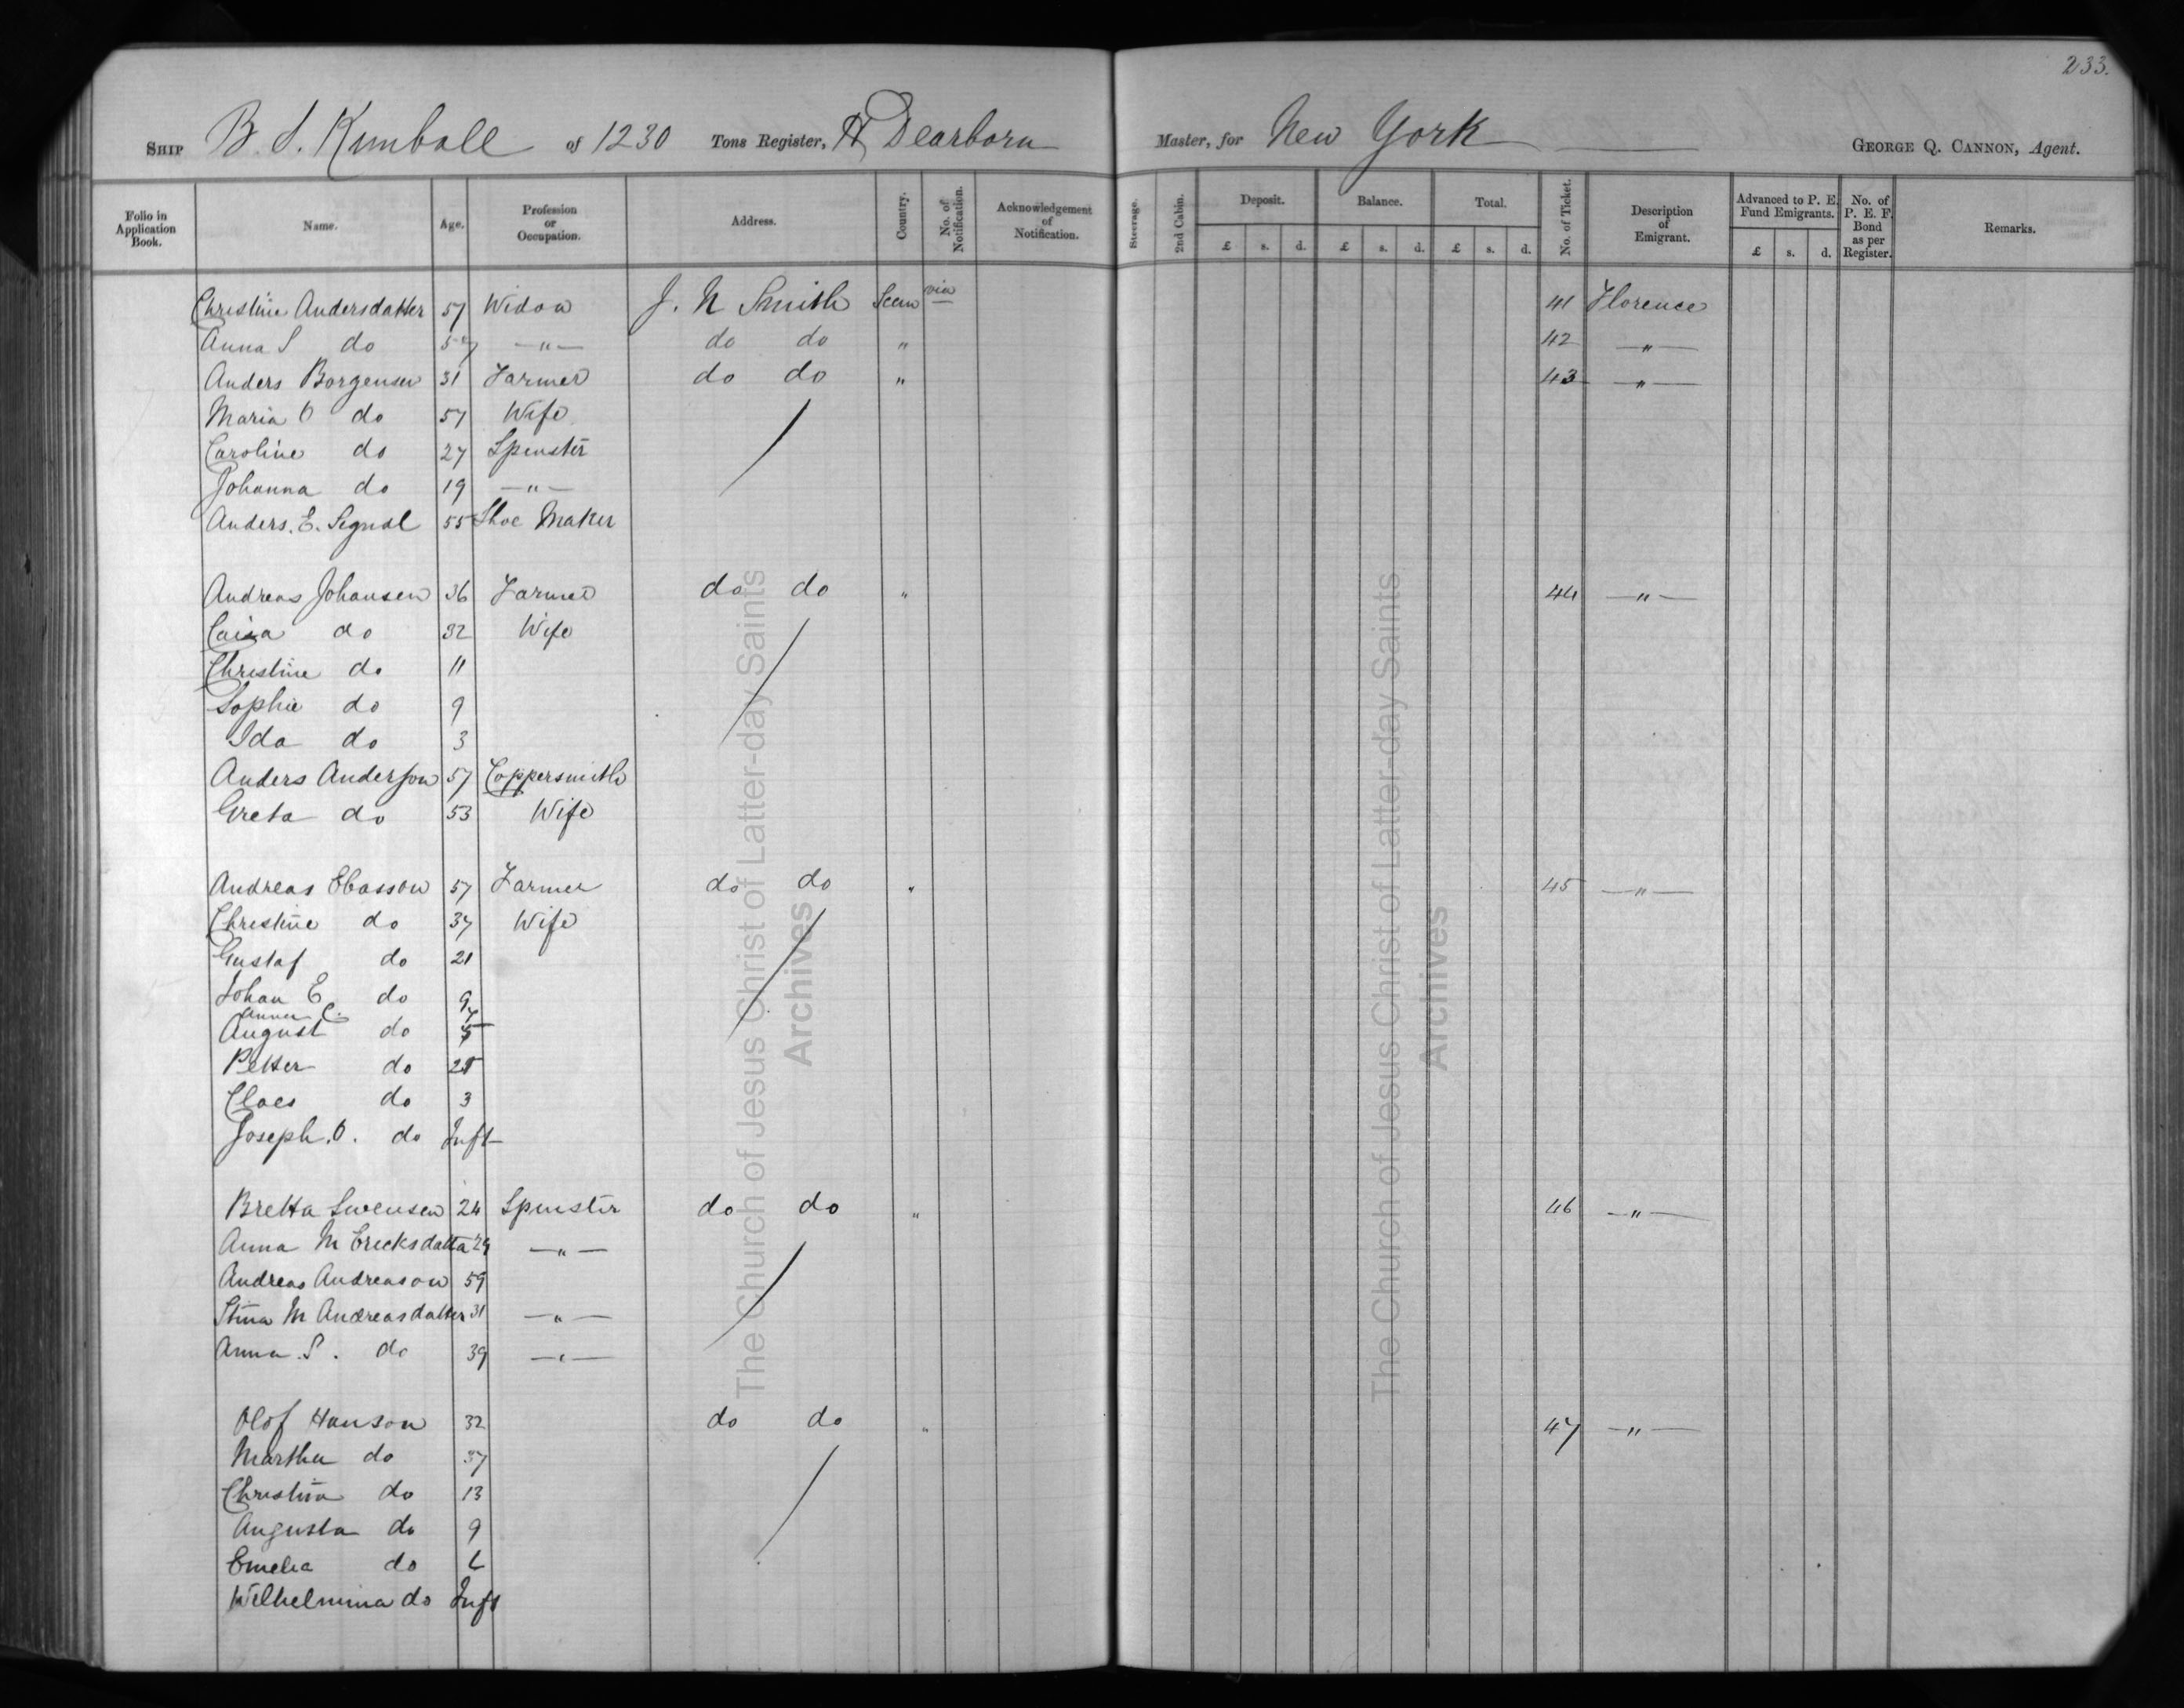 233.
SHIP B. S. Kimball of 1230 Tons Register, H Dearborn Master, for New York GEORGE Q. CANNON, Agent.
Folio in Application Book. Name. Age. Profession or Occupation. Address. Country. No. of Notification. Acknowledgement of Notification. Steerage. 2nd Cabin. Deposit. £ s. d. Balance. £ s. d. Total. £ s. d. No. of Ticket. Description of Emigrant. Advanced to P. E. Fund Emigrants. £ s. d. No. of P. E. F. Bond as per Register. Remarks.
Christine Andersdatter 57 Widow J. N Smith Scan via 41 Florence
Anna S do 57 —"— do do " 42 —"—
Anders Borgensen 31 Farmer do do " 43 —"—
Maria O do 57 Wife
Caroline do 27 Spinster
Johanna do 19 —"—
Anders. E. Segnal 55 Shoe Maker
Andreas Johansen 36 Farmer do do " 44 —"—
Caisa do 32 Wife
Christine do 11
Sophie do 9
Ida do 3
Anders Anderson 57 Coppersmith
Greta do 53 Wife
Andreas Ebasson 57 Farmer do do " 45 —"—
Christine do 37 Wife
Gustaf do 21
Johan E do 9
Anna C. 7
August do 5
Petter do
Claes do 3
Joseph. O. do Inft
Bretta Swensen 24 Spinster do do " 46 —"—
Anna M Ericksdatta 29 —"—
Andreas Andreason 59
Stina M Andreasdatter 31 —"—
Anna. S. do 39 —"—
Olof Hanson 32 do do " 47 —"—
Martha do 37
Christina do 13
Augusta do 9
Emelia do
Wilhelmina do Inft
The Church of Jesus Christ of Latter-day Saints
Archives
The Church of Jesus Christ of Latter-day Saints
Archives